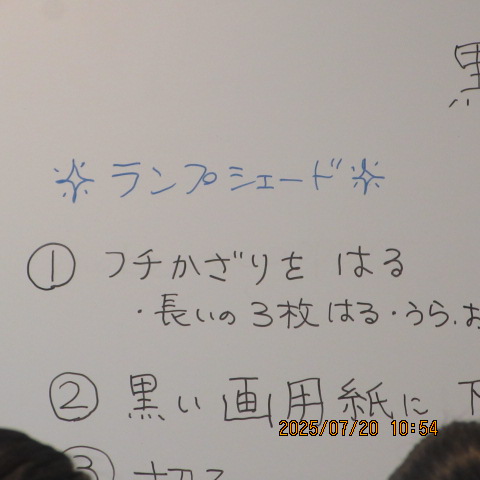 黒
ランプシェード
① フチかざりを はる
・長いの3枚はる・うら、お
② 黒い画用紙に 下
③ 切る
2025/07/20 10:54